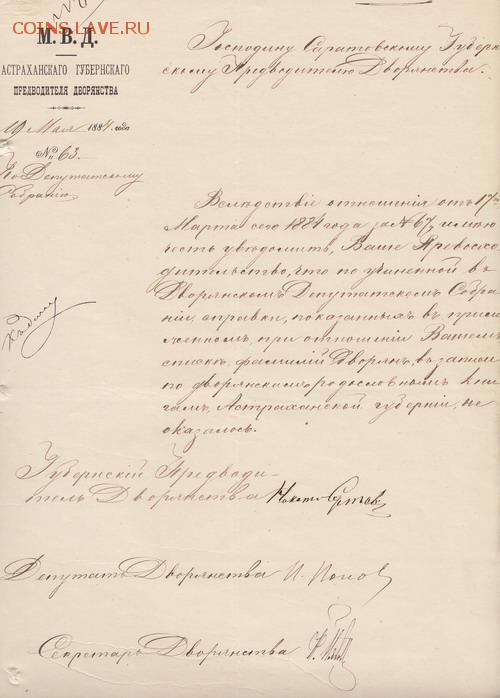 COINS.LAVE.RU
М. В. Д.
АСТРАХАНСКАГО ГУБЕРНСКАГО
ПРЕДВОДИТЕЛЯ ДВОРЯНСТВА
19 Мая 1884 года
№ 63
По Депутатскому
Собранію
Господину Саратовскому Губерн
скому Предводителю Дворянства.
Вслѣдствіе отношенія отъ 17го
Марта сего 1884 года за № 67, имѣю
честь увѣдомить, Ваше Превосхо
дительство, что по учиненной въ
Дворянскомъ Депутатскомъ Собра
ніи, справки, показанныхъ въ прило
женномъ, при отношеніи Вашемъ
спискѣ, фамилій Дворянъ, въ записи
по дворянскимъ родословнымъ кни
гамъ, Астраханской губерніи, не
оказалось.
Къ дѣлу
Губернскій Предводи-
тель Дворянства
Депутатъ Дворянства И. Попов
Секретарь Дворянства